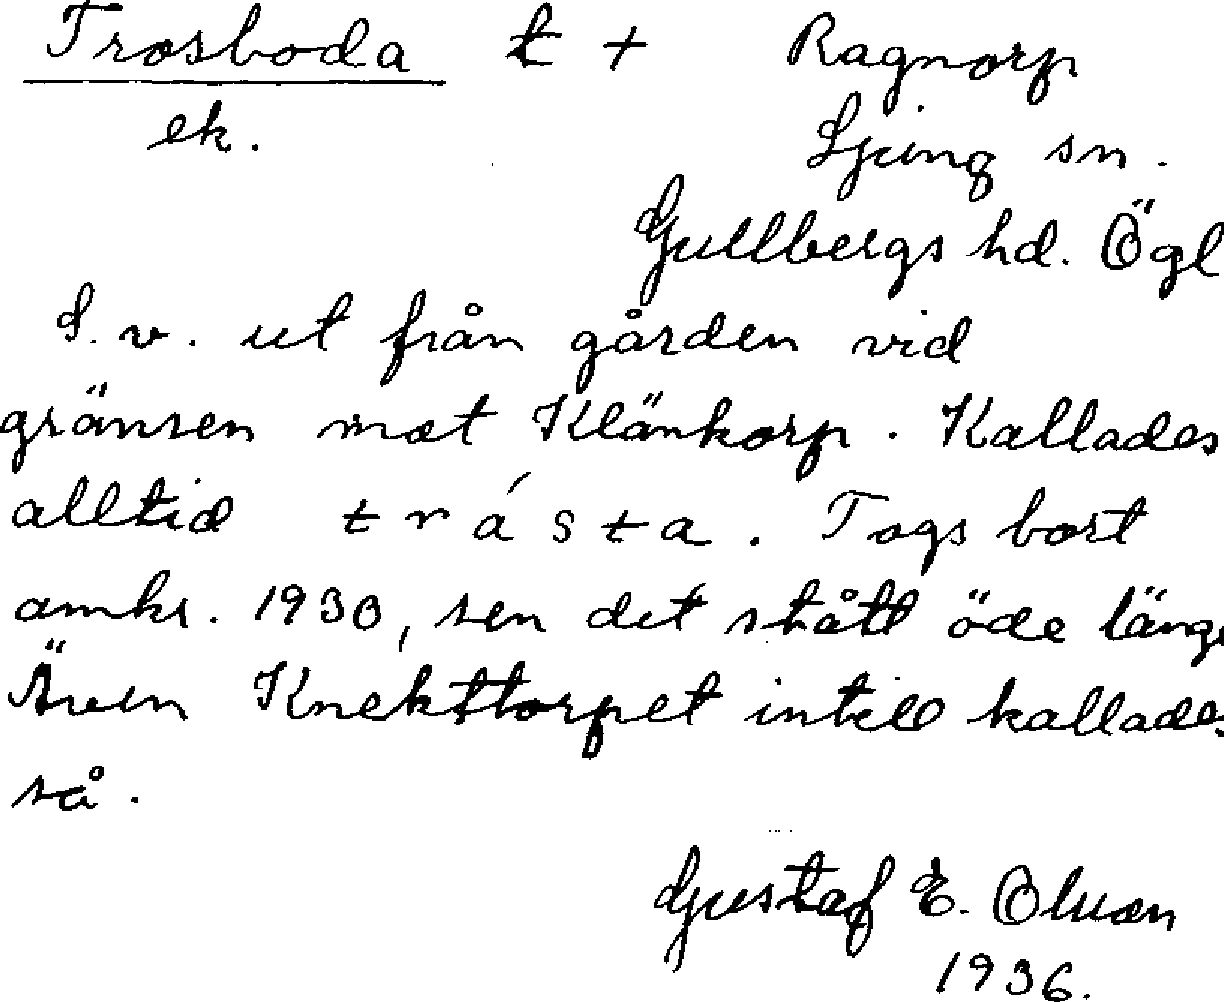 Trosboda t + Ragnorp
ek. Ljung sn.
Gullbergs hd. Ögl
S.v. ut från gården vid
gränsen mot Klänkorp. Kallades
alltid trásta. Togs bort
omkr. 1930, sen det stått öde länge
Även Knekttorpet intill kallades
så.
Gustaf E. Olsson
1936.